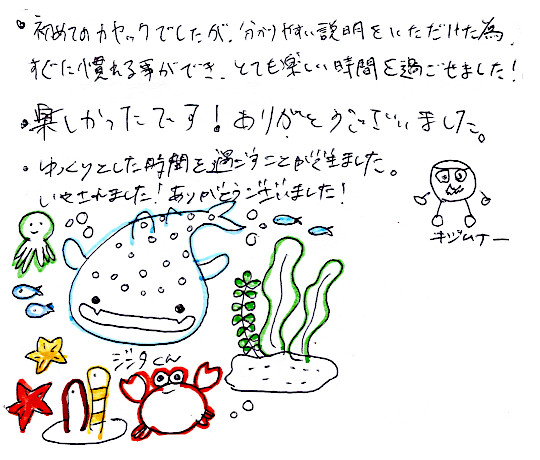 ・初めてのカヤックでしたが、分かりやすい説明をいただけた為、
すぐに慣れる事ができ、とても楽しい時間を過ごせました！
・楽しかったです！ありがとうございました。
・ゆっくりとした時間を過ごすことができました。
いやされました！ありがとうございました！
キジムナー
ジンタくん